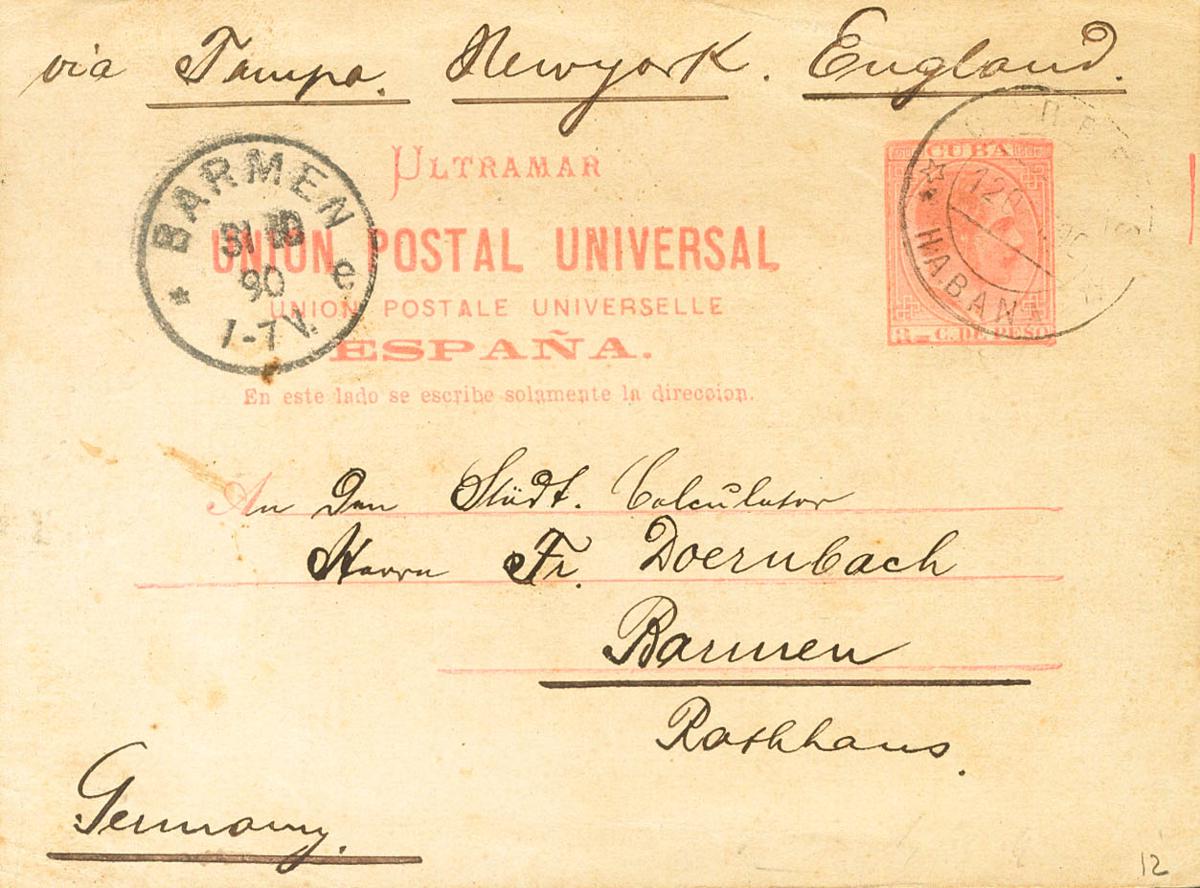 via Tampa. Newyork. England.
CUBA
ULTRAMAR
BARMEN
31 10
90
1-7 V.
e
HABANA
UNION POSTAL UNIVERSAL
UNION POSTALE UNIVERSELLE
C. DE PESO
ESPAÑA.
En este lado se escribe solamente la direccion.
An den Städt. Calculator
Herrn Fr. Doernbach
Barmen
Rathhaus.
Germany.
12